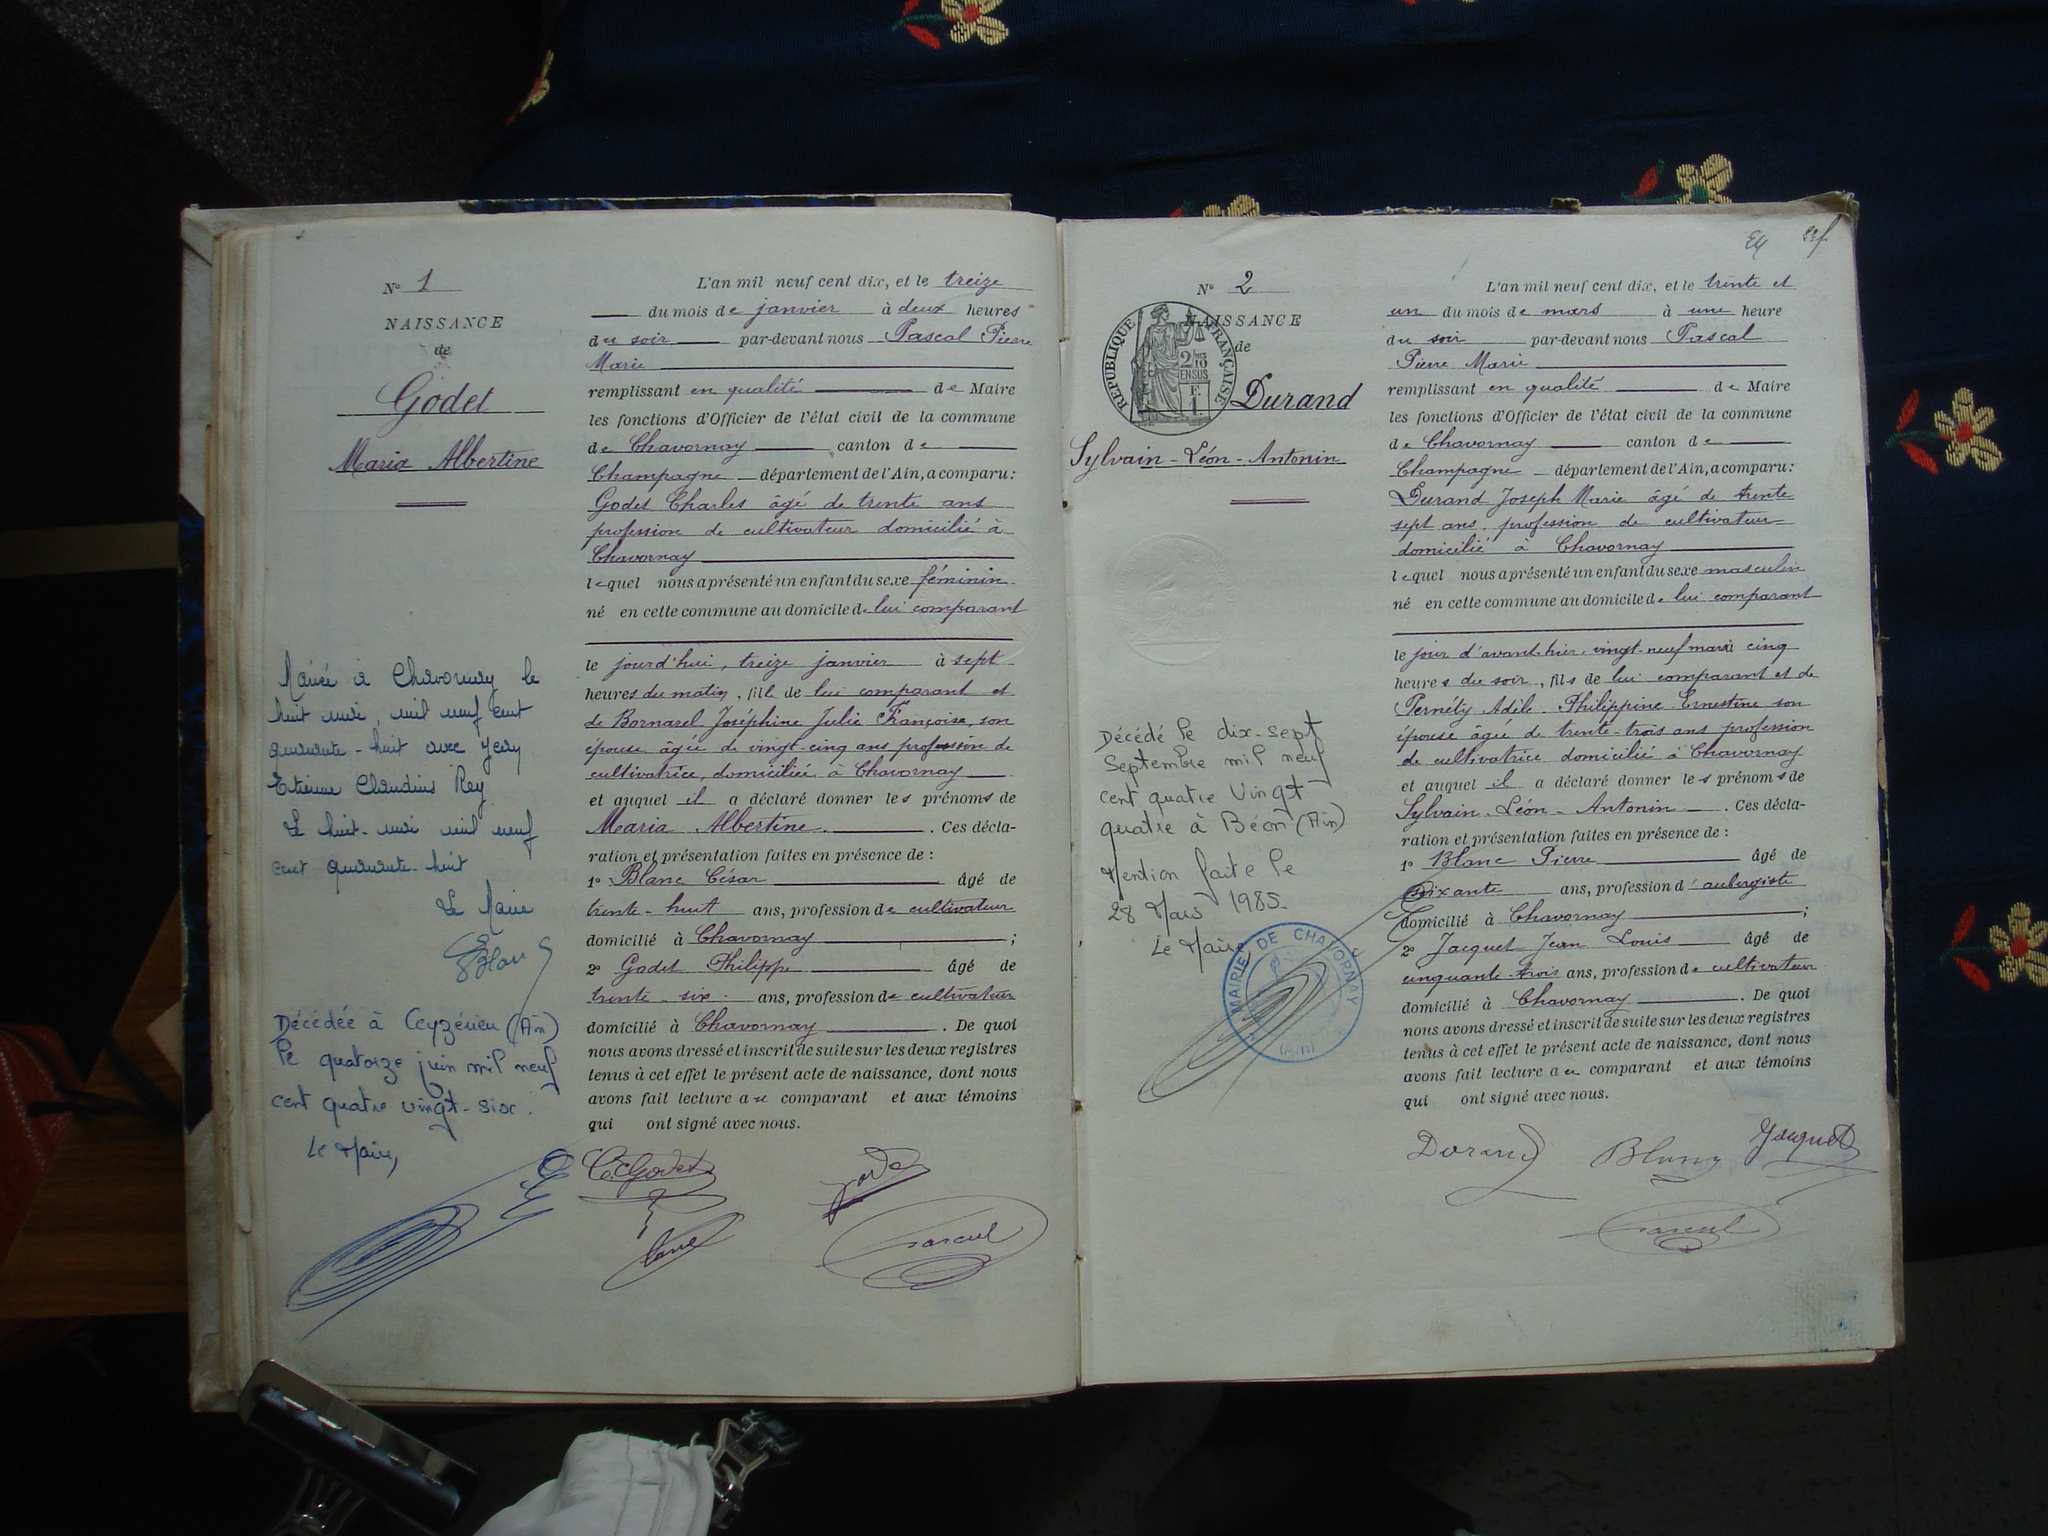 N° 1
NAISSANCE
de
Godet
Maria Albertine
L'an mil neuf cent dix, et le treize
du mois de janvier à deux heures
du soir par-devant nous Pascal Pierre
Marie
remplissant en qualité de Maire
les fonctions d'Officier de l'état civil de la commune
de Chavornay canton de
Champagne département de l'Ain, a comparu:
Godet Charles âgé de trente ans
profession de cultivateur domicilié à
Chavornay
lequel nous a présenté un enfant du sexe féminin
né en cette commune au domicile de lui comparant
le jourd'hui, treize janvier à sept
heures du matin, fille de lui comparant et
de Bornarel Joséphine Julie Françoise, son
épouse âgée de vingt-cinq ans profession de
cultivatrice, domiciliée à Chavornay
et auquel il a déclaré donner les prénoms de
Maria Albertine. Ces décla-
ration et présentation faites en présence de :
1° Blanc César âgé de
trente-huit ans, profession de cultivateur
domicilié à Chavornay ;
2° Godet Philippe âgé de
trente-six ans, profession de cultivateur
domicilié à Chavornay. De quoi
nous avons dressé et inscrit de suite sur les deux registres
tenus à cet effet le présent acte de naissance, dont nous
avons fait lecture au comparant et aux témoins
qui ont signé avec nous.
Mariée à Chavornay le
huit mai, mil neuf cent
quarante-huit avec Jean
Etienne Claudius Rey
Le huit-mai mil neuf
cent quarante-huit
Le Maire
Blanc
Décédée à Ceyzérieu (Ain)
le quatorze juin mil neuf
cent quatre vingt-six.
Le Maire,
C. Godet
Pascal
24
N° 2
NAISSANCE
de
RÉPUBLIQUE FRANÇAISE
2/10 EN SUS
Durand
Sylvain-Léon-Antonin
L'an mil neuf cent dix, et le trente et
un du mois de mars à une heure
du soir par-devant nous Pascal
Pierre Marie
remplissant en qualité de Maire
les fonctions d'Officier de l'état civil de la commune
de Chavornay canton de
Champagne département de l'Ain, a comparu:
Durand Joseph Marie âgé de trente
sept ans, profession de cultivateur
domicilié à Chavornay
lequel nous a présenté un enfant du sexe masculin
né en cette commune au domicile de lui comparant
le jour d'avant-hier, vingt-neuf mars à cinq
heures du soir, fils de lui comparant et de
Pernéty Adèle Philippine Ernestine son
épouse âgée de trente-trois ans profession
de cultivatrice domiciliée à Chavornay
et auquel il a déclaré donner les prénoms de
Sylvain-Léon-Antonin. Ces décla-
ration et présentation faites en présence de :
1° Blanc Pierre âgé de
soixante ans, profession d'aubergiste
domicilié à Chavornay ;
2° Jacquet Jean Louis âgé de
cinquante-trois ans, profession de cultivateur
domicilié à Chavornay. De quoi
nous avons dressé et inscrit de suite sur les deux registres
tenus à cet effet le présent acte de naissance, dont nous
avons fait lecture au comparant et aux témoins
qui ont signé avec nous.
Décédé le dix-sept
Septembre mil neuf
cent quatre vingt
quatre à Béon (Ain)
Mention faite le
28 Mars 1985
Le Maire
MAIRIE DE CHAVORNAY
(Ain)
Durand
Blanc
Jacquet
Pascal